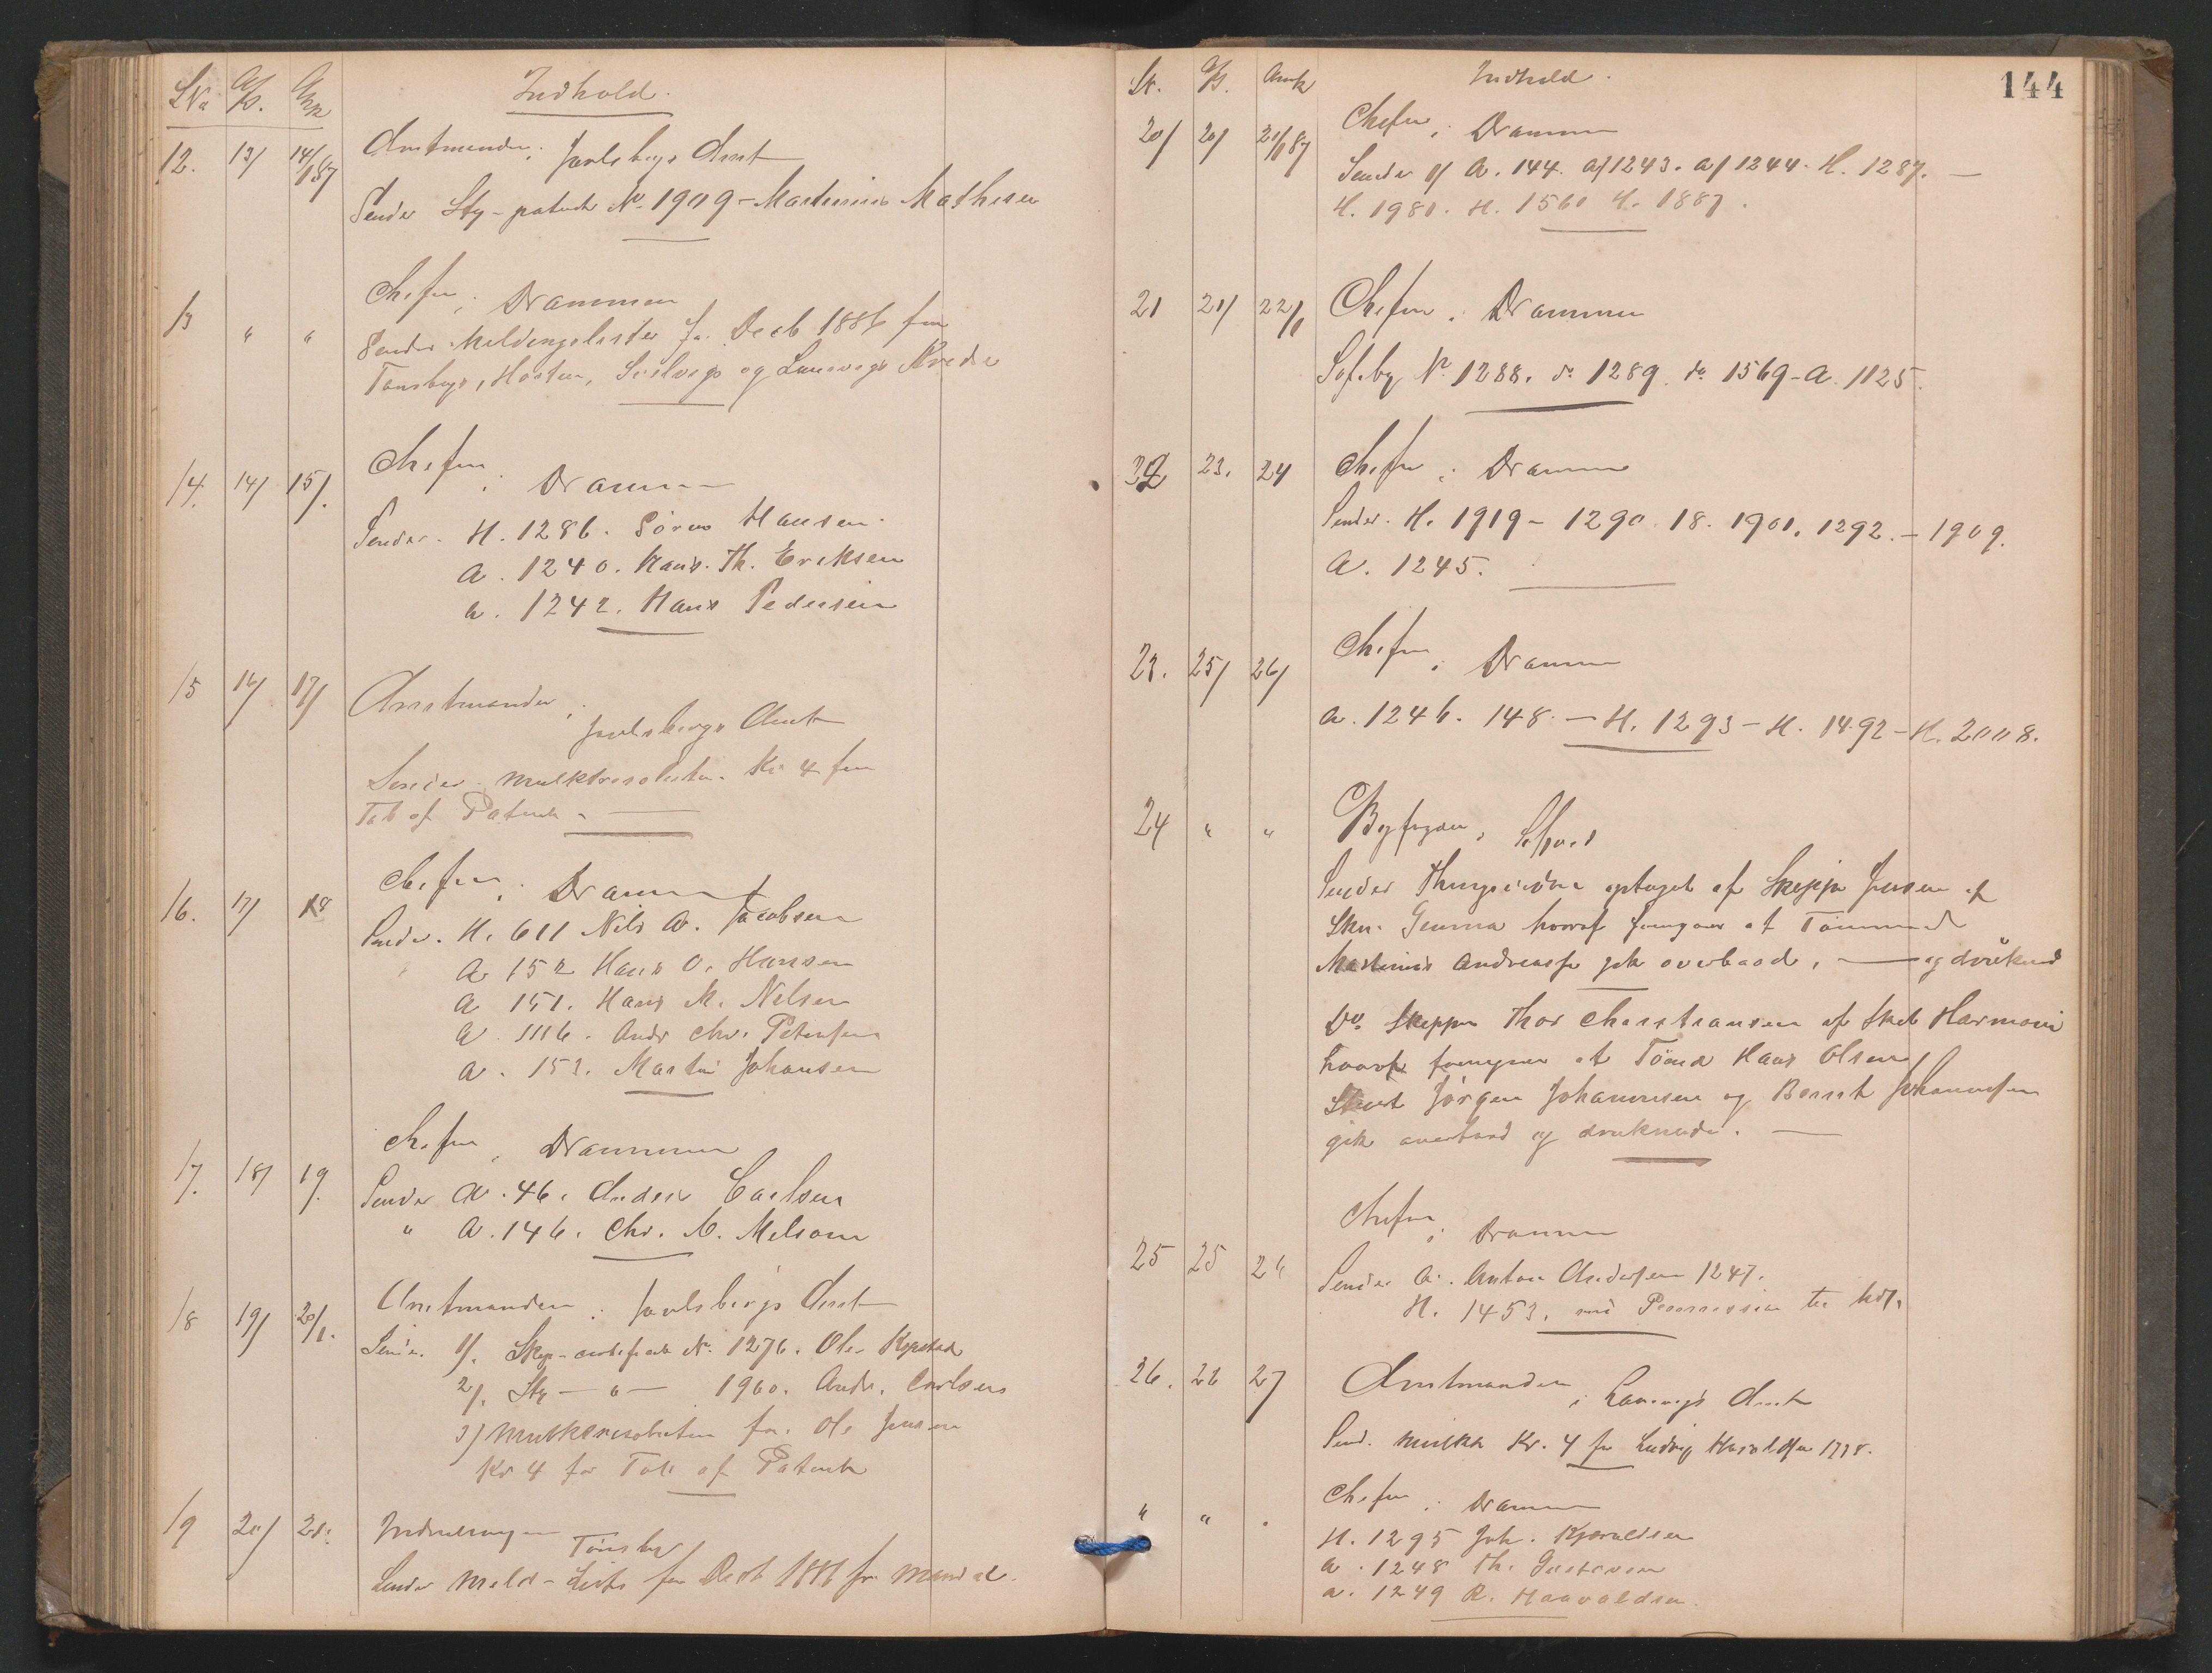 Indhold.
12. 13/ 14/1 87 Amtmanden i Jarlsbergs Amt
Sender Sty-patent No. 1909 - Martinius Mathisen
13 " " Chefen i Drammen
Sender Meldingslister for Decb 1886 fra
Tønsbergs, Horten, og Laurvigs Kredse
14. 14/ 15/. Chefen i Drammen
Sender. H. 1286. Sören Hansen.
A. 1240. Hans Th. Eriksen
A. 1242. Hans Pedersen
15 16/ 17/1 Amtmanden i
Jarlsbergs Amt
Sender mulktresolution Kr 4 for
Tab af Patent.
16. 17/ 18 Chefen i Drammen
Sender. H. 611 Nils A. Jacobsen
A 152 Hans O. Hansen
A 151. Hans M. Nilsen
A 1116. Andr Chr. Petersen
A. 153. Martin Johansen
17. 18/ 19. Chefen i Drammen
Sender A. 46. Anders Carlsen
" A. 146. Chr. Melsom
18 19/ 20/1. Amtmanden i Jarlsbergs Amt
Sender. 1/. No. 1276. Ole
2/. Sty - " - 1960. Andr. Carlsen
3/ Mulktresolution for Ole Jensen
Kr 4 for Tab af Patent
19 20/ 21. Indrulleringen
Tønsberg
Sender Meld-Liste for Decb 1886 fra Mandal.
144
Indhold.
20/ 20/ 21/1 87 Chefen i Drammen
Sender A. 144. A/1243. A/1244. H. 1287. —
H. 1980. H. 1560 H. 1887.
21 21/ 22/1 Chefen i Drammen
No. 1288. do 1289 do 1569 - A 1125.
22 23. 24 Chefen i Drammen
Sender. H. 1919 - 1290 18. 1901. 1292. - 1909.
A. 1245.
23. 25/ 26/ Chefen i Drammen
A. 1246. 148. - H. 1293 - H. 1492 - H. 2008.
24 " " Byfogden i
Sender optaget af Skipper Jensen af
Skn. Gemma hvoraf fremgaar at Tømmermand
Martinius Andreassen gik overbord, — og druknede
Do. Skipper Thor Christiansen af Skib Harmoni
hvoraf fremgaar at Tömd Hans Olsen
Jörgen Johannesen og Berent Johannesen
gik overbord og druknede. —
25 25 26 Chefen i Drammen
Sender A. Anton Andersen 1247.
H. 1453. med Permission til
26. 26 27 Amtmanden i Laurvigs Amt
Send. mulkt Kr. 4 for Ludvig
" " . Chefen i Drammen
H. 1295 Joh.
A. 1248 Th. Gustavsen
A. 1249 R. Haavaldsen.